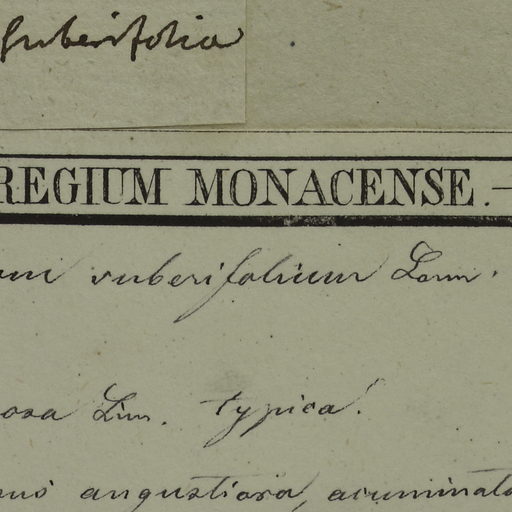 suberifolia
REGIUM MONACENSE.—
suberifolium Lam.
osa Lin. typica!
angustiora, acuminata